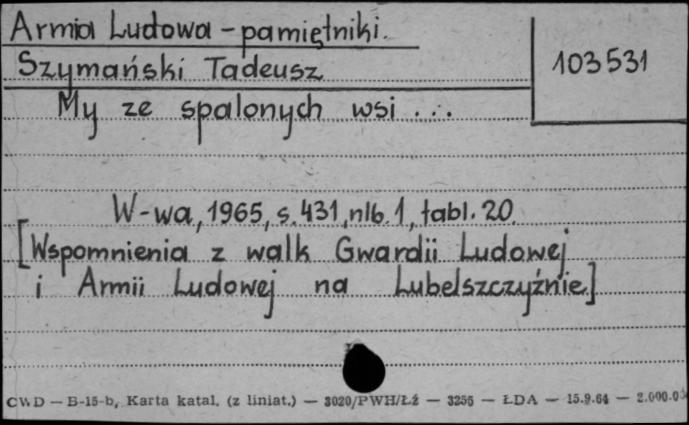 Armia Ludowa - pamiętniki.
Szymański Tadeusz
103531
My ze spalonych wsi ...
W-wa, 1965, s. 431, nlb. 1, tabl. 20.
[Wspomnienia z walk Gwardii Ludowej
i Armii Ludowej na Lubelszczyźnie.]
CWD — B-15-b, Karta katal. (z liniat.) — 3020/PWH/Łż — 3256 — ŁDA — 15.9.64 — 2.000.0